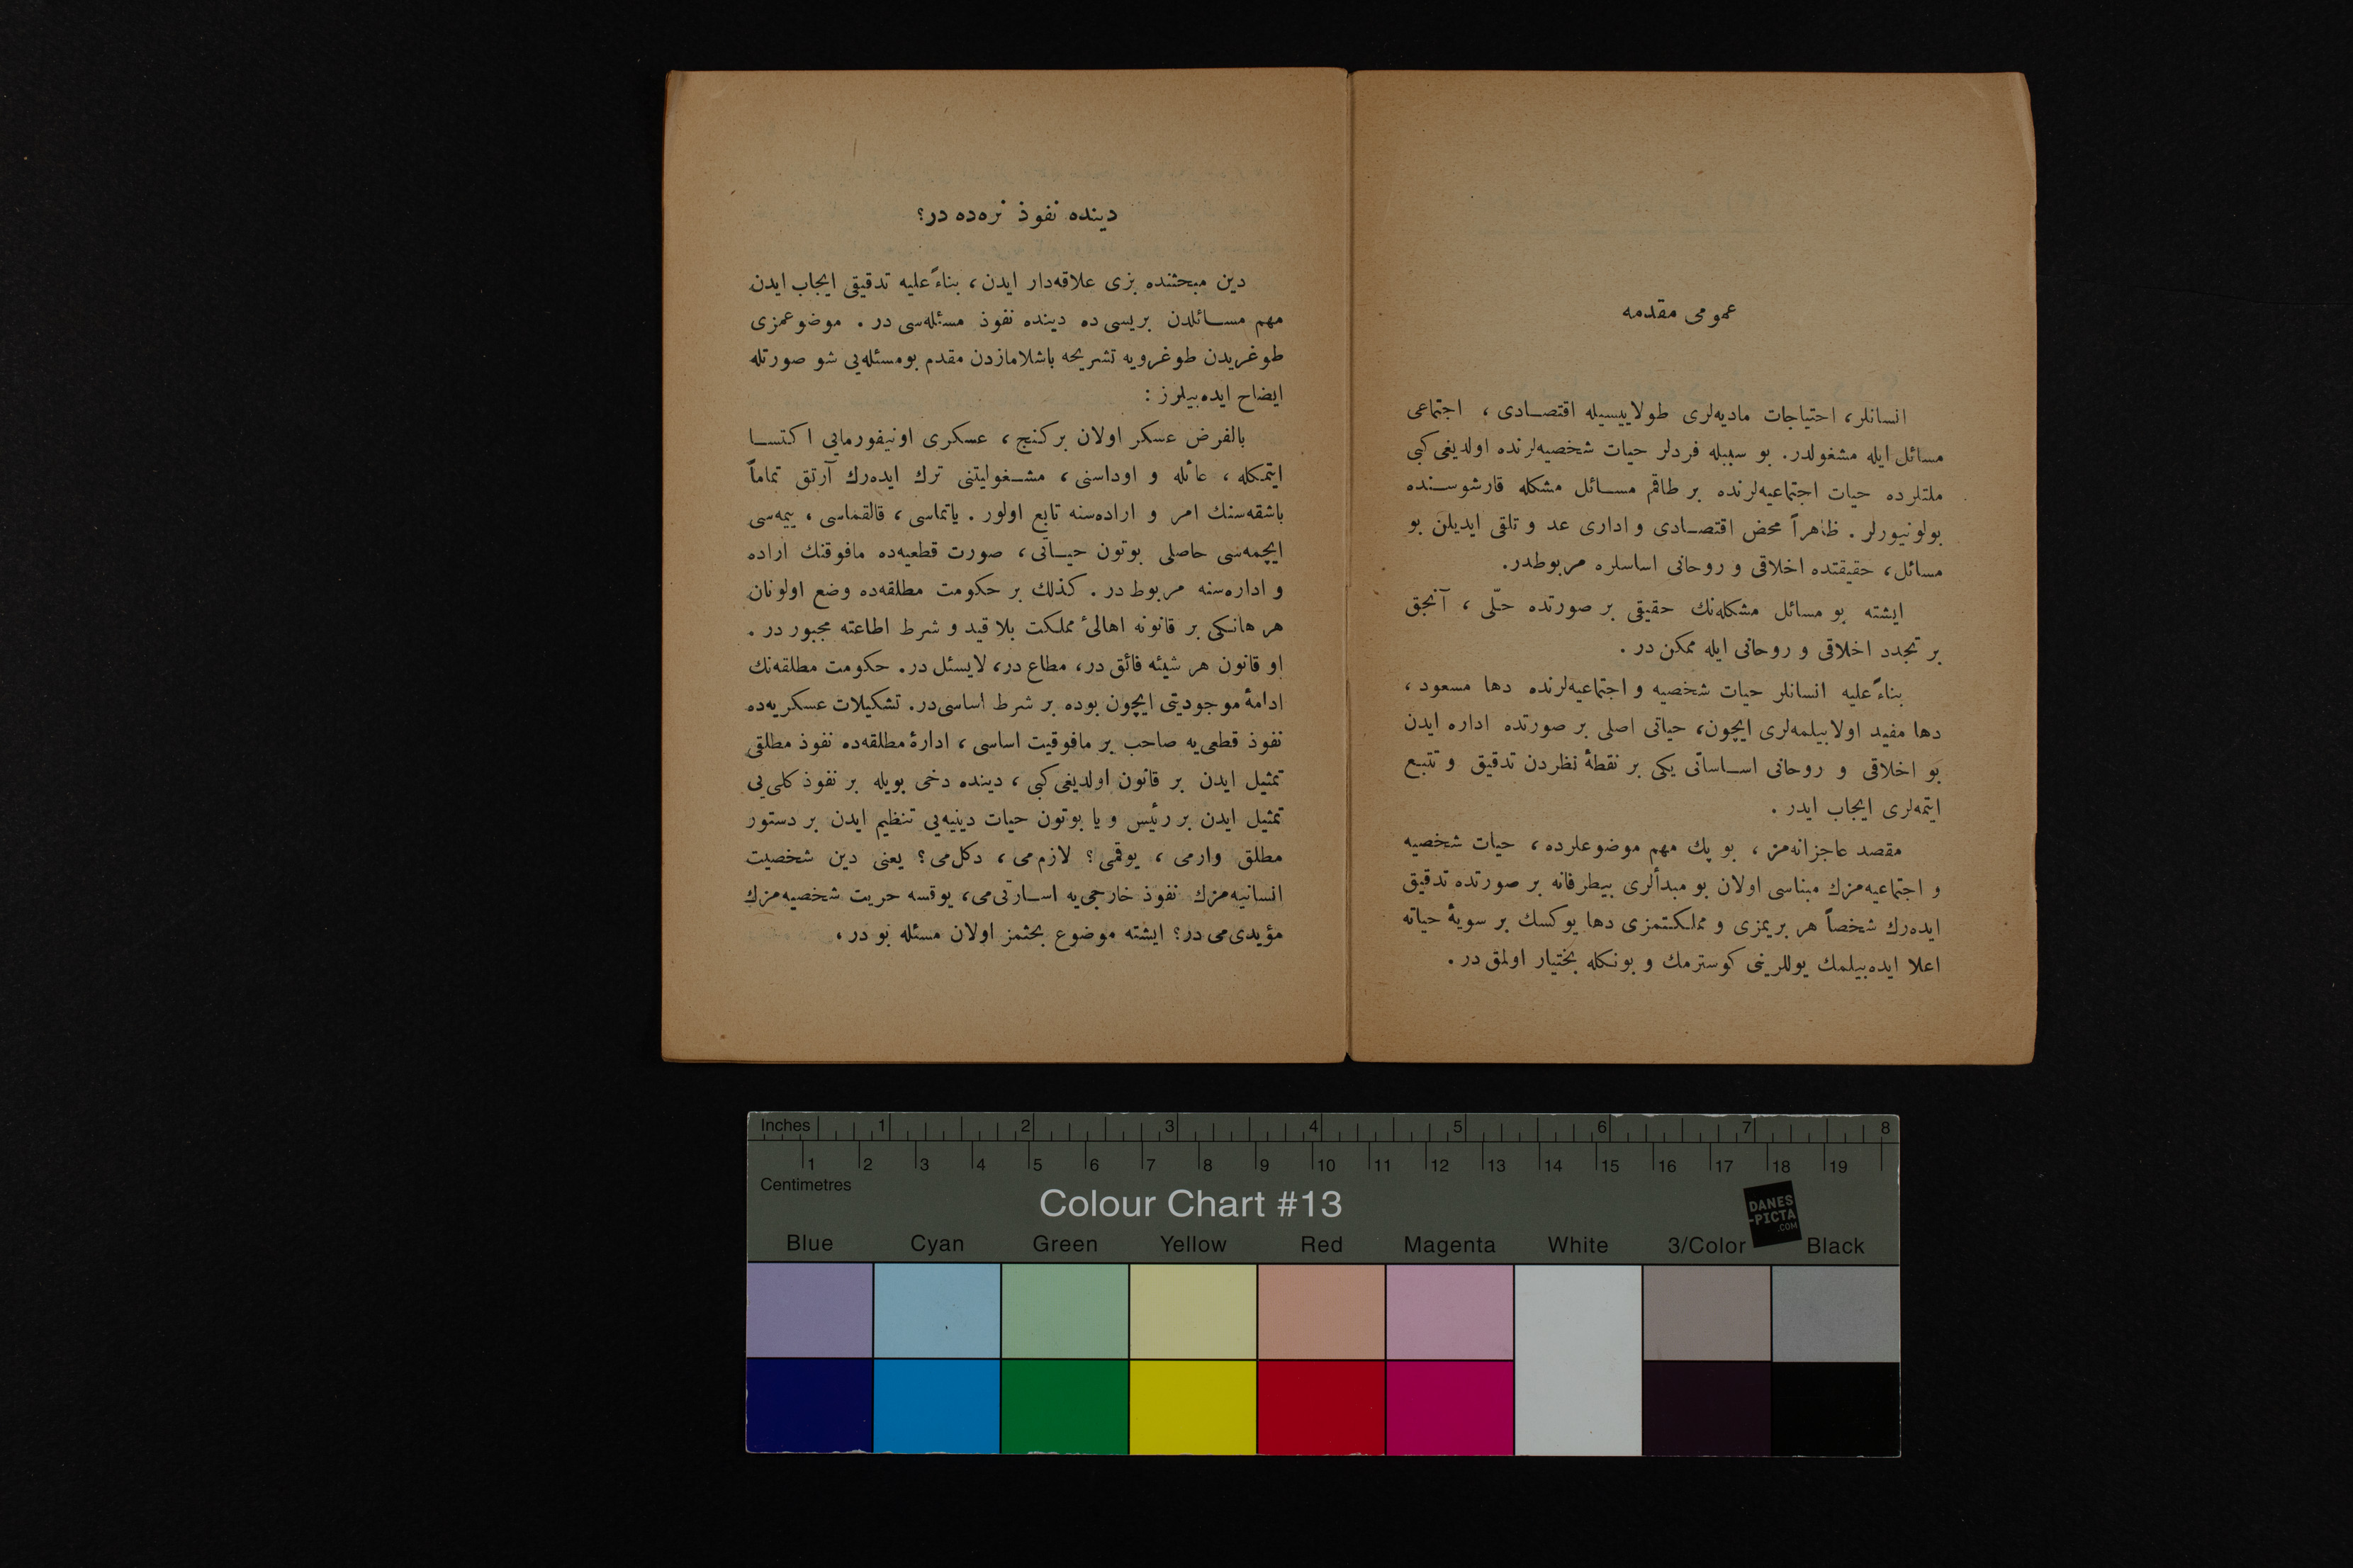 عمومى مقدمه
انسانلر، احتياجات ماديه‌لرى طولاييسيله اقتصادى ، اجتماعى
مسائل ايله مشغولدر. بو سببله فردلر حيات شخصيه‌لرنده اولديغى كبى
ملتلرده حيات اجتماعيه‌لرنده بر طاقم مسائل مشكله قارشوسنده
بولونيورلر . ظاهراً محض اقتصادى و ادارى عد و تلقى ايديلن بو
مسائل، حقيقتده اخلاقى و روحانى اساسلره مربوطدر.
ايشته بو مسائل مشكله‌نك حقيقى بر صورتده حلّى ، آنجق
بر تجدد اخلاقى و روحانى ايله ممكن در .
بناءً عليه انسانلر حيات شخصيه و اجتماعيه‌لرنده دها مسعود ،
دها مفيد اولابيلمه‌لرى ايچون، حياتى اصلى بر صورتده اداره ايدن
بو اخلاقى و روحانى اساساتى يكى بر نقطهٔ نظردن تدقيق و تتبع
ايتمه‌لرى ايجاب ايدر .
مقصد عاجزانه‌مز ، بو پك مهم موضوعلرده ، حيات شخصيه
و اجتماعيه‌مزك مبناسى اولان بو مبدألرى بيطرفانه بر صورتده تدقيق
ايده‌رك شخصاً هر بريمزى و مملكتمزى دها يوكسك بر سويهٔ حياته
اعلا ايده‌بيلمك يوللرينى كوسترمك و بونكله بختيار اولمق در .
دينده نفوذ نره‌ده در؟
دين مبحثنده بزى علاقه‌دار ايدن ، بناءً عليه تدقيقى ايجاب ايدن
مهم مسائلدن بريسى ده دينده نفوذ مسئله‌سى در . موضوعمزى
طوغريدن طوغرويه تشريحه باشلامازدن مقدم بومسئله‌يى شو صورتله
ايضاح ايده‌بيلرز :
بالفرض عسكر اولان بركنج ، عسكرى اونيفورمايى اكتسا
ايتمكله ، عائله و اوداسنى ، مشغوليتنى ترك ايده‌رك آرتق تماماً
باشقه‌سنك امر و اراده‌سنه تابع اولور . ياتماسى ، قالقماسى ، ييمه‌سى
ايچمه‌سى حاصلى بوتون حياتى ، صورت قطعيه‌ده مافوقنك اراده
و اداره‌سنه مربوط در . كذلك بر حكومت مطلقه‌ده وضع اولونان
هر هانكى بر قانونه اهالئ مملكت بلا قيد و شرط اطاعته مجبور در .
او قانون هر شيئه فائق در، مطاع در، لايسئل در. حكومت مطلقه‌نك
ادامهٔ موجوديتى ايچون بوده بر شرط اساسى‌در. تشكيلات عسكريه‌ده
نفوذ قطعى‌يه صاحب بر مافوقيت اساسى ، ادارهٔ مطلقه‌ده نفوذ مطلقى
تمثيل ايدن بر قانون اولديغى كبى ، دينده دخى بويله بر نفوذ كلى‌يى
تمثيل ايدن بر رئيس و يا بوتون حيات دينيه‌يى تنظيم ايدن بر دستور
مطلق وارمى ، يوقمى؟ لازم‌مى ، دكل‌مى؟ يعنى دين شخصيت
انسانيه‌مزك نفوذ خارجى‌يه اسارتى‌مى، يوقسه حريت شخصيه‌مزك
مؤيدى‌مى در؟ ايشته موضوع بحثمز اولان مسئله بو در ،
Inches 1 2 3 4 5 6 7 8
1 2 3 4 5 6 7 8 9 10 11 12 13 14 15 16 17 18 19
Centimetres
Colour Chart #13
DANES
-PICTA
.COM
Blue Cyan Green Yellow Red Magenta White 3/Color Black